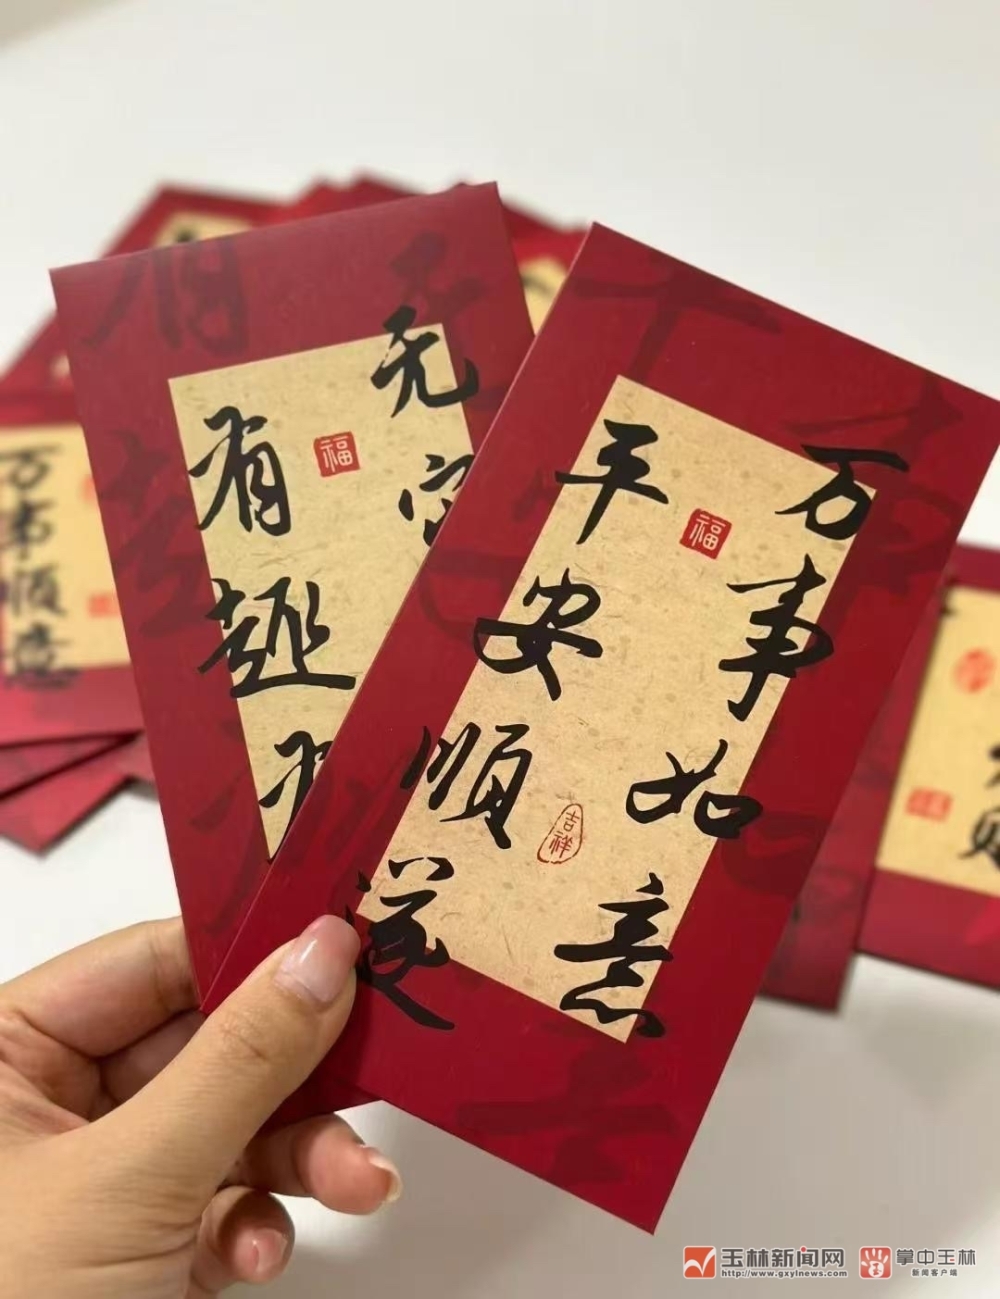 万事如意
平安顺遂
福
吉祥
无
有趣
福
万事顺意
玉林新闻网
http://www.gxylnews.com
掌中玉林
新闻客户端